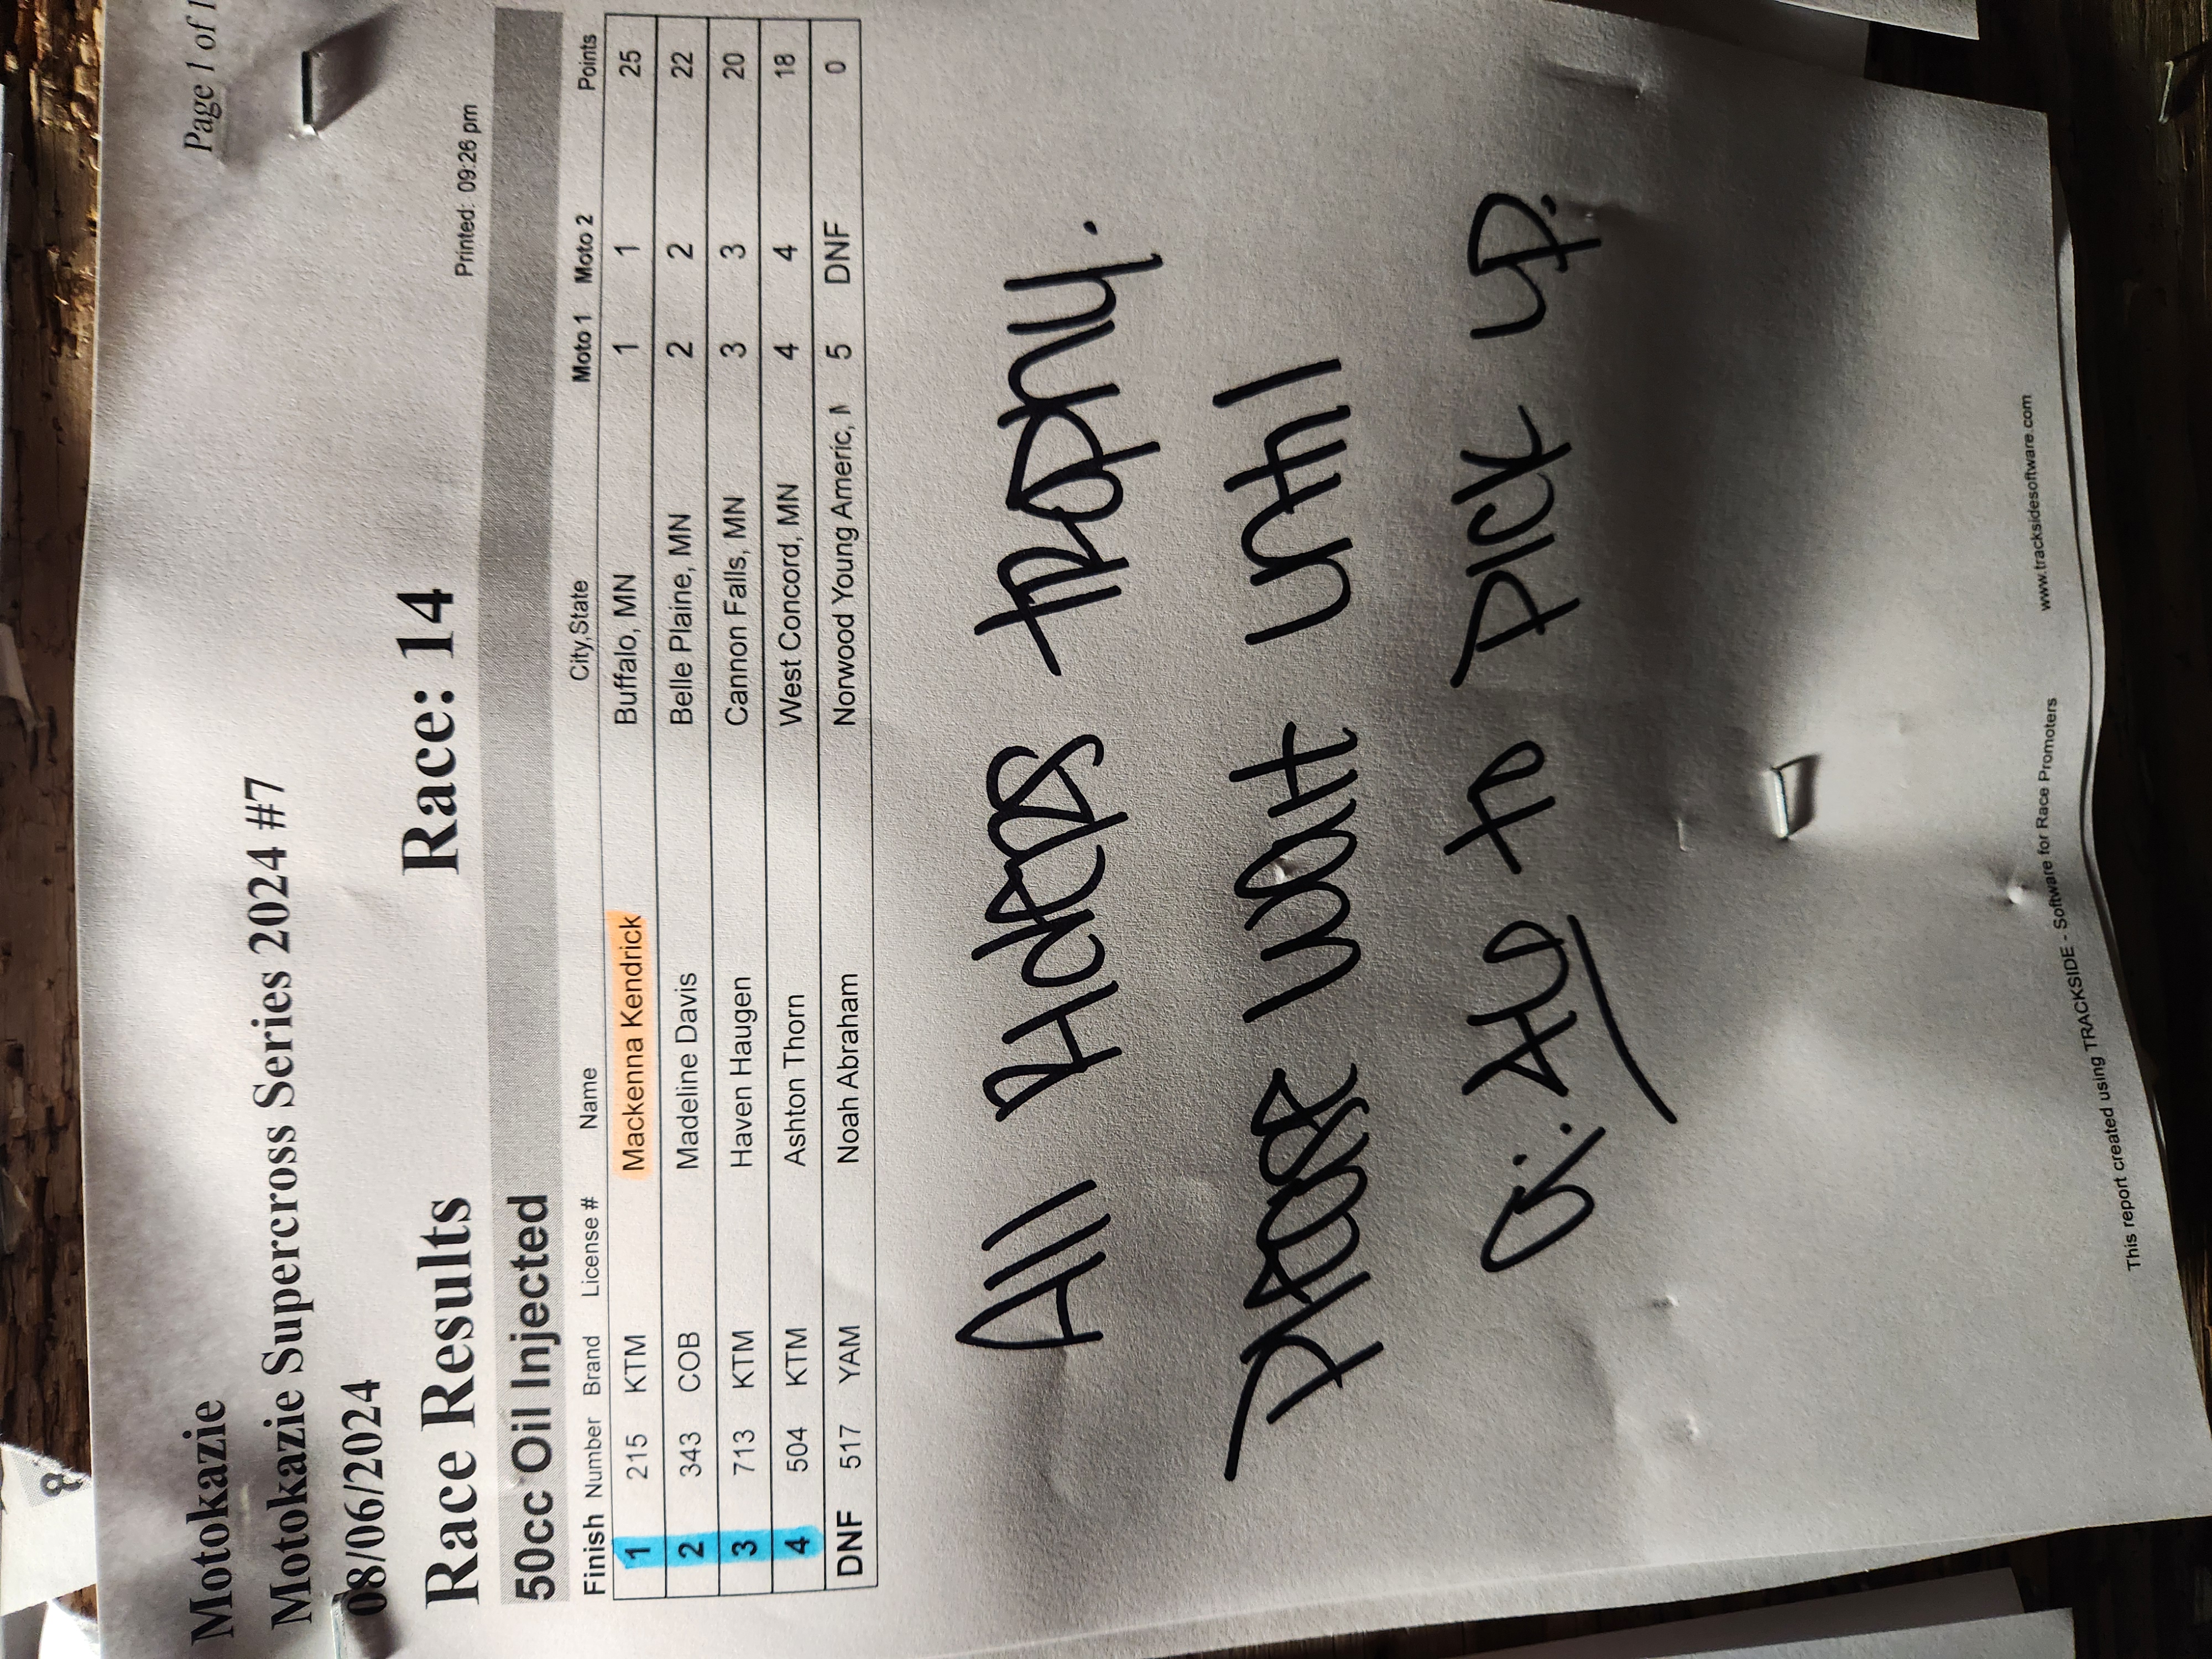 Page 1 of 1
Motokazie
Motokazie Supercross Series 2024 #7
08/06/2024
Race Results Race: 14
Printed: 09:26 pm
50cc Oil Injected
Finish Number Brand License # Name City,State Moto 1 Moto 2 Points
1 215 KTM Mackenna Kendrick Buffalo, MN 1 1 25
2 343 COB Madeline Davis Belle Plaine, MN 2 2 22
3 713 KTM Haven Haugen Cannon Falls, MN 3 3 20
4 504 KTM Ashton Thorn West Concord, MN 4 4 18
DNF 517 YAM Noah Abraham Norwood Young Americ, M 5 DNF 0
All places trophy.
Please wait until
to pick up.
This report created using TRACKSIDE - Software for Race Promoters www.tracksidesoftware.com
8